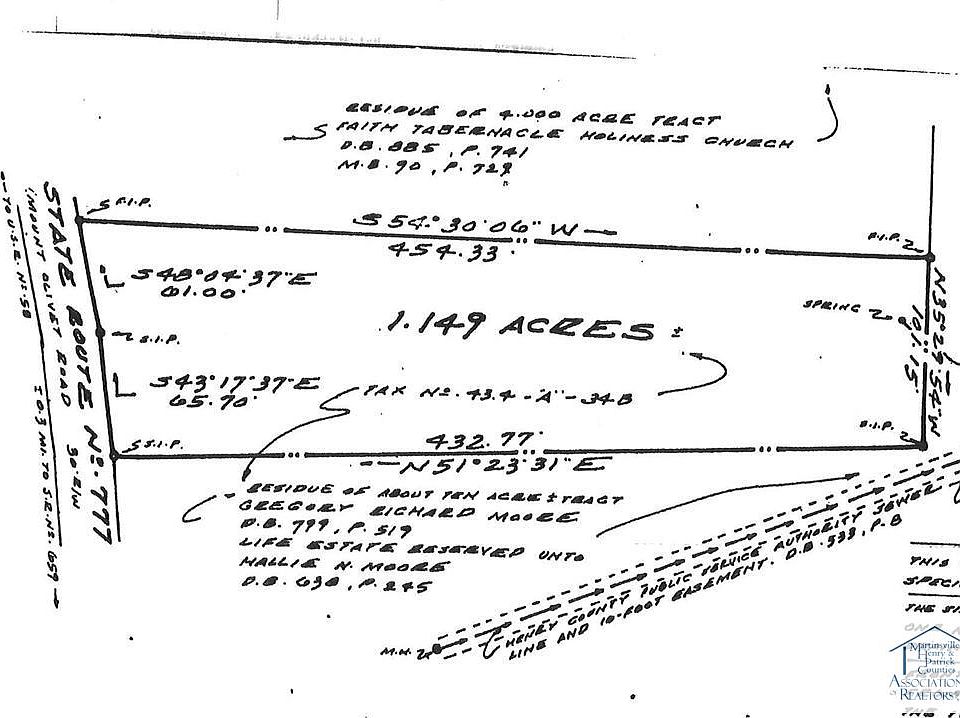 RESIDUE OF 4.000 ACRE TRACT
FAITH TABERNACLE HOLINESS CHURCH
D.B. 885, P. 741
M.B. 90, P. 729
F.I.P.
S 54° 30' 06" W
454.33'
F.I.P.
S 48° 04' 37" E
61.00'
SPRING
N 35° 29' 54" W
101.15'
1.149 ACRES ±
S.I.P.
S 43° 17' 37" E
65.70'
TAX Nº. 43.4 -"A"- 34B
S.I.P.
432.77'
N 51° 23' 31" E
S.I.P.
STATE ROUTE Nº. 777
(MOUNT OLIVET ROAD 30' R/W
TO U.S.R. Nº 58
TO 0.3 MI. TO S.R. Nº. 659
RESIDUE OF ABOUT TEN ACRE ± TRACT
GREGORY RICHARD MOORE
D.B. 799, P. 519
LIFE ESTATE RESERVED UNTO
HALLIE N. MOORE
D.B. 638, P. 245
M.H.
HENRY COUNTY PUBLIC SERVICE AUTHORITY SEWER
LINE AND 10-FOOT EASEMENT. D.B. 533, P. 8
THIS
SPECI
THE
Martinsville
Henry &
Patrick
Counties
ASSOCIATION
REALTORS
THE